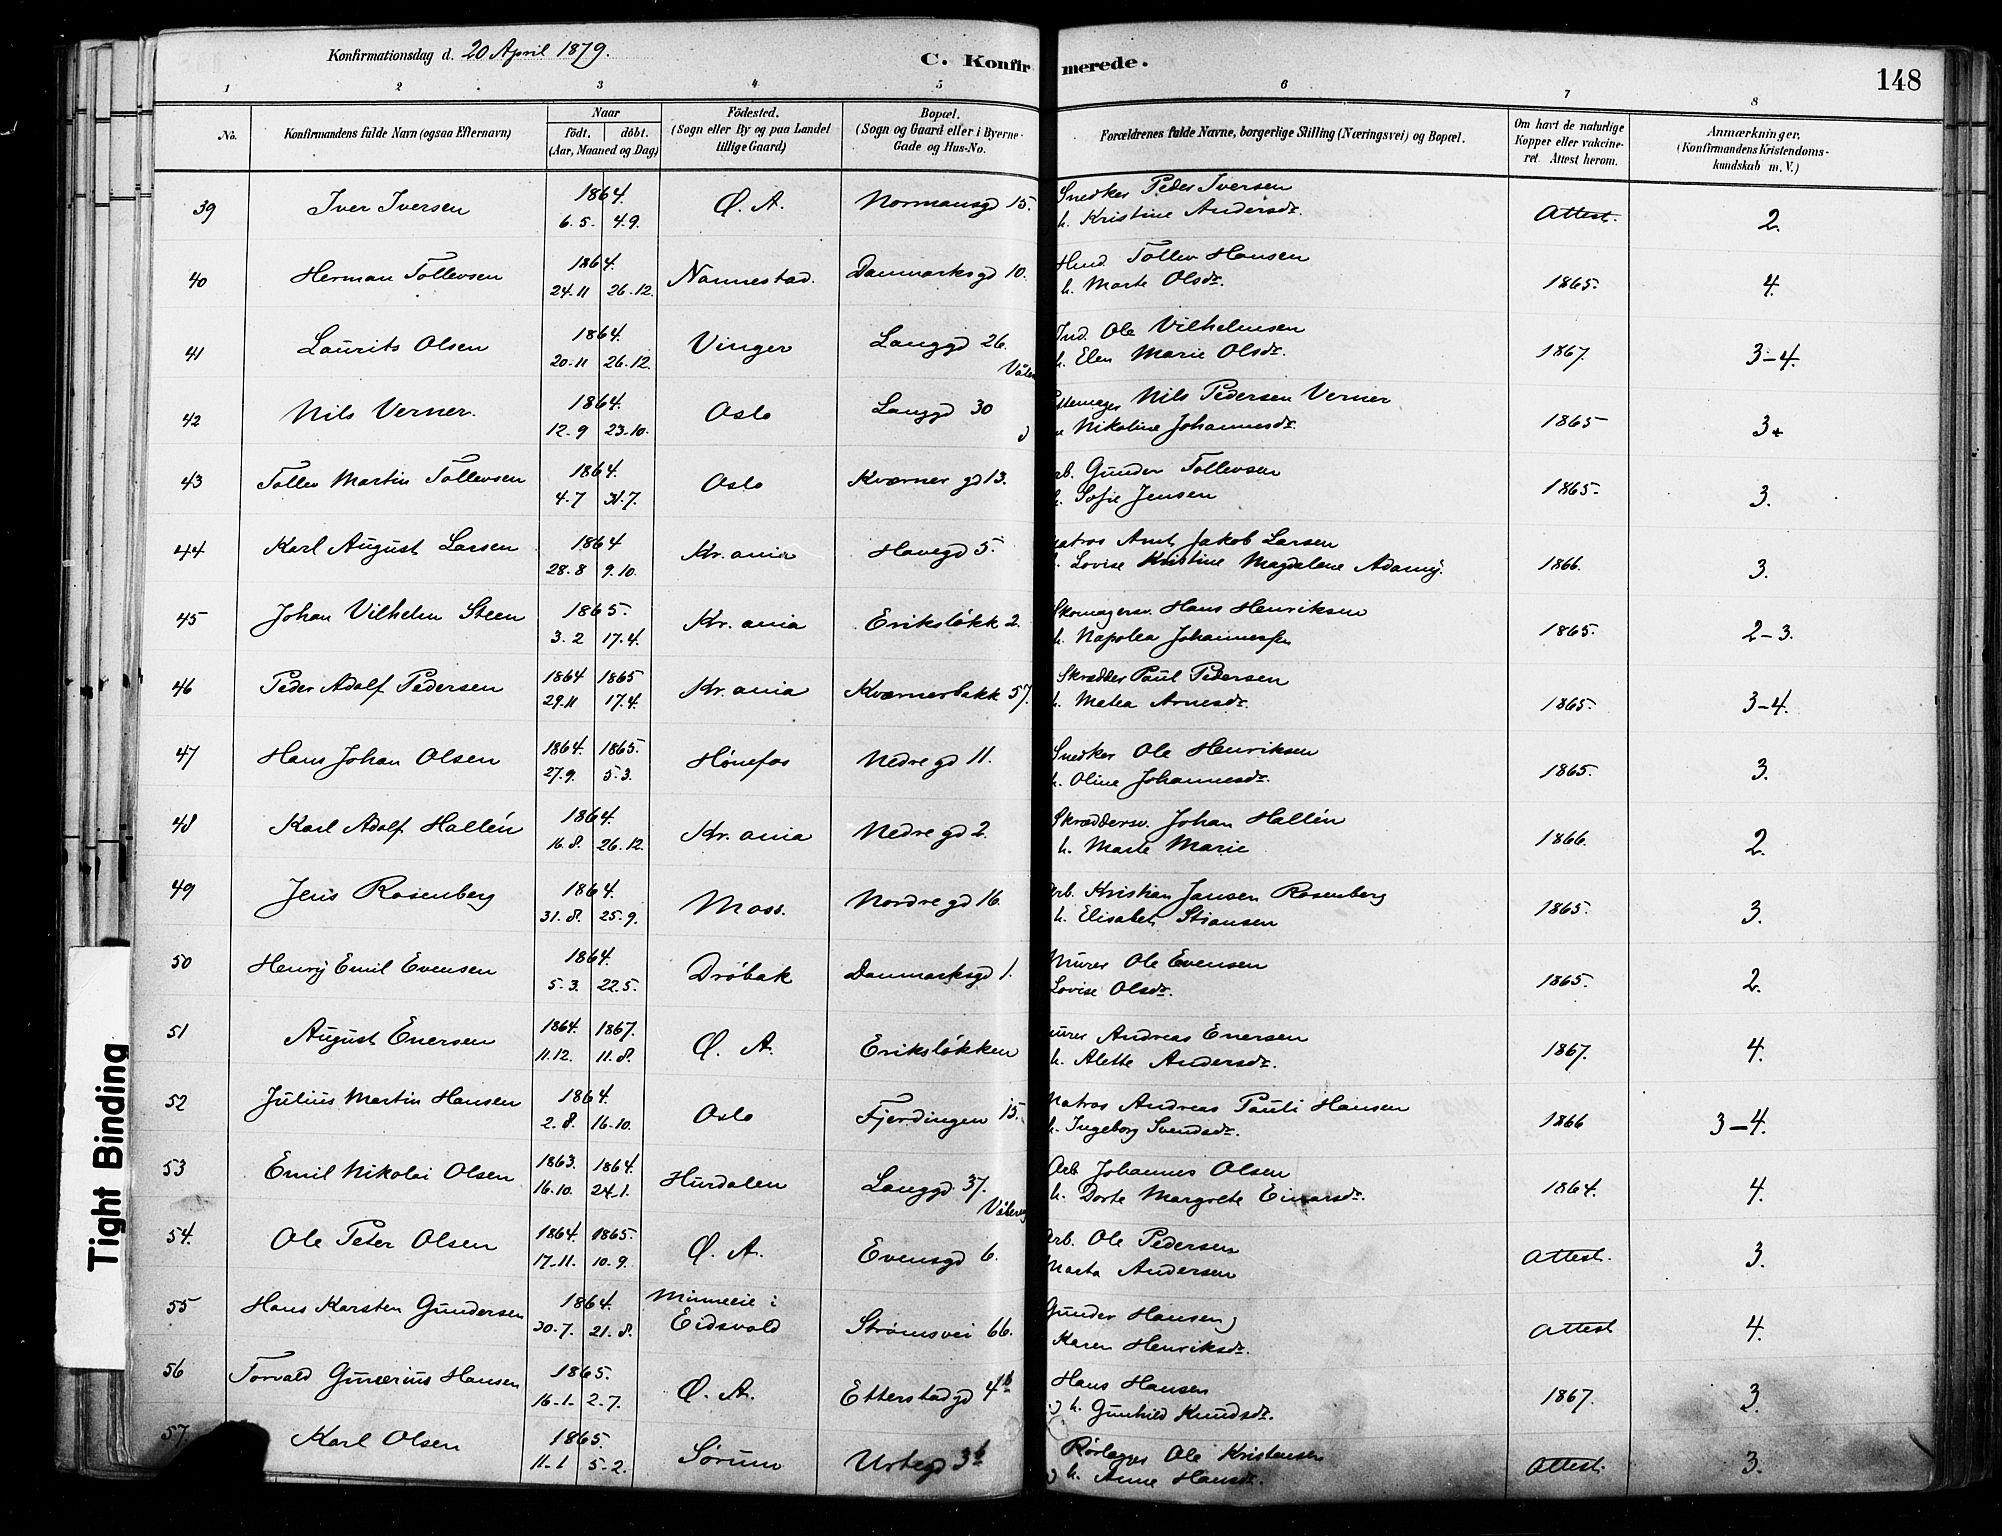 Konfirmationsdag d. 20 April 1879.
C. Konfirmerede.
148
1 2 3 4 5 6 7 8
No.
Konfirmandens fulde Navn (ogsaa Efternavn)
Naar
födt. döbt.
(Aar, Maaned og Dag)
Födested.
(Sogn eller By og paa Landet
tillige Gaard)
Bopæl.
(Sogn og Gaard eller i Byerne
Gade og Hus-No.
Forældrenes fulde Navne, borgerlige Stilling (Næringsvei) og Bopæl.
Om havt de naturlige
Kopper eller vakcine-
ret. Attest herom.
Anmærkninger.
(Konfirmandens Kristendoms-
kundskab m. V.)
39 Iver Iversen 1864. 6.5. 4.9. Ø. A. Normansgd 15. Snedker Peder Iversen
h. Kristine Andersdr. Attest. 2.
40 Herman Tollevsen 1864. 24.11 26.12. Nannestad. Danmarksgd 10. Tollev Hansen
h. Marte Olsdr. 1865. 4.
41 Laurits Olsen 1864. 20.11 26.12. Vinger Langgd 26. Ind. Ole Vilhelmsen
h. Elen Marie Olsdr. 1867. 3-4.
42 Nils Verner. 1864. 12.9 23.10. Oslo Langgd 30 Nils Pedersen Verner
Nikoline Johannesdr. 1865 3.
43 Tollev Martin Tollevsen 1864. 4.7 31.7. Oslo Kværnergd 13. Gunder Tollevsen
h. Sofie Jensen 1865. 3.
44 Karl August Larsen 1864 28.8 9.10. Kr.ania Havegd 5. Jakob Larsen
Lovise Kristine Magdalene 1866. 3.
45 Johan Vilhelm Steen 1865. 3.2 17.4. Kr.ania Eriksløkk 2. Skomagersv. Hans Henriksen
h. Napolea 1865. 2-3.
46 Peder Adolf Pedersen 1864 29.11 1865 17.4. Kr.ania Kværnerbakk 57. Skrædder Paul Pedersen
h. Matea Arnesdr. 1865. 3-4.
47 Hans Johan Olsen 1864. 27.9. 1865. 5.3. Hønefos Nedregd 11. Snedker Ole Henriksen
h. Oline Johannesdr. 1865. 3.
48 Karl Adolf Hallén 1864. 16.8. 26.12. Kr.ania Nedregd 2. Skræddersv. Johan Hallén
h. Marte Marie 1866. 2.
49 Jens Rosenberg 1864. 31.8. 25.9. Moss. Nordregd 16. Arb. Kristian Jansen Rosenberg
h. Elisabet Stiansen 1865. 3.
50 Henry Emil Evensen 1864. 5.3. 22.5. Drøbak Danmarksgd 1. Murer Ole Evensen
Lovise Olsdr. 1865. 2.
51 August Enersen 1864. 11.12. 1867. 11.8. Ø. A. Eriksløkken Andreas Enersen
h. Alette Andersdr. 1867. 4.
52 Julius Martin Hansen 1864. 2.8. 16.10. Oslo Fjerdingen 15. Matros Andreas Pauli Hansen
h. Ingeborg Svendsdr. 1866 3-4.
53 Emil Nikolai Olsen 1863. 16.10. 1864. 24.1. Hurdalen Langgd 37. Arb. Johannes Olsen
h. Dorte Margrete Einarsdr. 1864. 4.
54. Ole Peter Olsen 1864. 17.11. 1865. 10.9. Ø. A. Evensgd 6. Arb. Ole Pedersen
Marta Andersen Attest. 3.
55 Hans Karsten Gundersen 1864. 30.7. 21.8. Minneeie i
Eidsvold Strømsvei 66. Gunder Hansen
Karen Henriksdr. Attest 4.
56 Torvald Gunerius Hansen 1865. 16.1. 2.7. Ø. A. Etterstadgd 4b Hans Hansen
h. Gunhild Knudsdr. 1867. 3.
57. Karl Olsen 1865. 11.1 5.2. Sørum Urtegd 3b Rørlægger Ole Kristensen
h. Anne Hansdr. Attest. 3.
Tight Binding